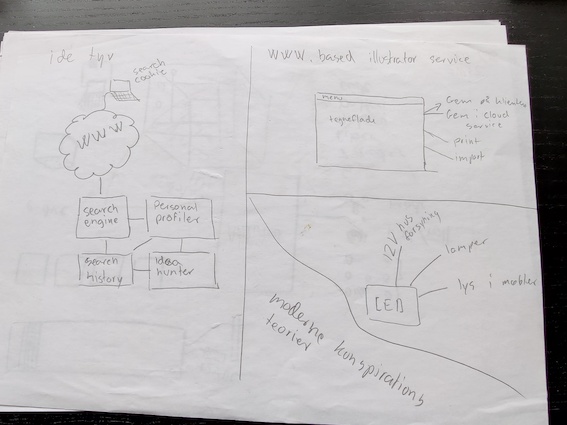 ide tyv
search
cookie
WWW
search
engine
Personal
profiler
search
history
idea
hunter
WWW. based illustrator service
menu
tegneflade
Gem på klienten
Gem i cloud
service
print
import
12V hus
forsyning
lamper
lys i møbler
LED
moderne konspirations
teorier